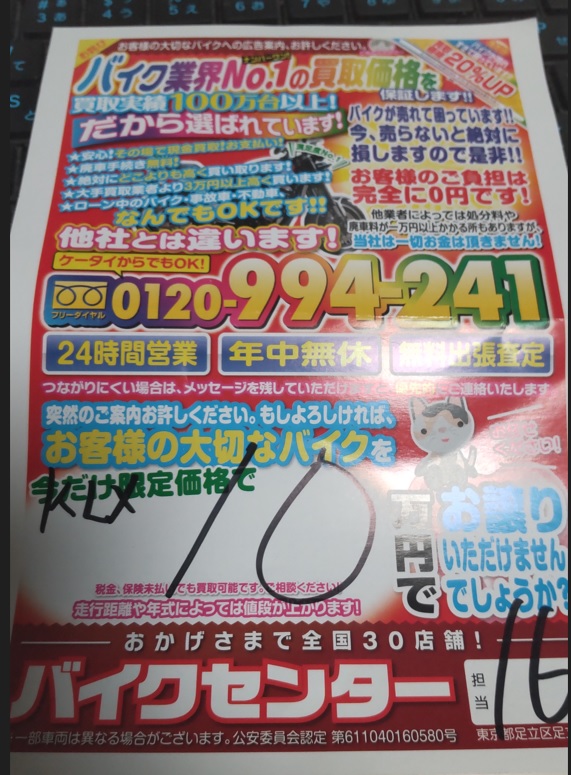 お客様の大切なバイクへの広告案内、お許しください。
ナンバーワン
バイク業界No.1の買取価格を
保証します!!
20%UP
買取実績100万台以上!
だから選ばれています!
バイクが売れて困っています!!
今、売らないと絶対に
損しますので是非!!
★安心!その場で現金買取!お支払い!
★廃車手続き無料!
★絶対にどこよりも高く買い取ります!
★大手買取業者より3万円以上高く買います!
★ローン中のバイク・事故車・不動車、
なんでもOKです!!
お客様のご負担は
完全に0円です!
他業者によっては処分料や
廃車料が一万円以上かかる所もありますが、
当社は一切お金は頂きません!
他社とは違います!
ケータイからでもOK!
フリーダイヤル
0120-994-241
24時間営業
年中無休
無料出張査定
つながりにくい場合は、メッセージを残していただけますと優先的にご連絡いたします
突然のご案内お許しください。もしよろしければ、
お客様の大切なバイクを
今だけ限定価格で
KLX
10
万円で
お譲り
いただけません
でしょうか?
税金、保険未払いでも買取可能です。ご相談ください!
走行距離や年式によっては値段が上がります!
おかげさまで全国30店舗!
バイクセンター
担当
16
一部車両は異なる場合がございます。公安委員会認定 第611040160580号
東京都足立区足立